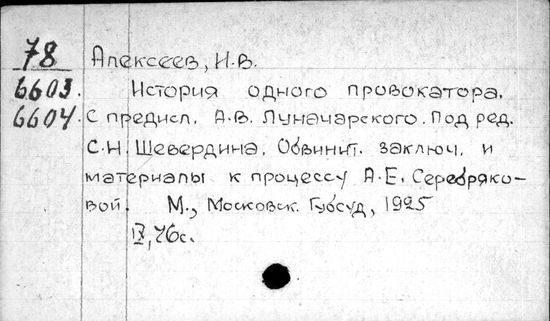 78 Алексеев, И.В.
6603. История одного провокатора.
6604. С предисл. А.В. Луначарского. Под ред.
С.Н. Шевердина. Обвинит. заключ. и
материалы к процессу А.Е. Серебряко-
вой. М., Московск. Губсуд, 1925
IX, 76с.